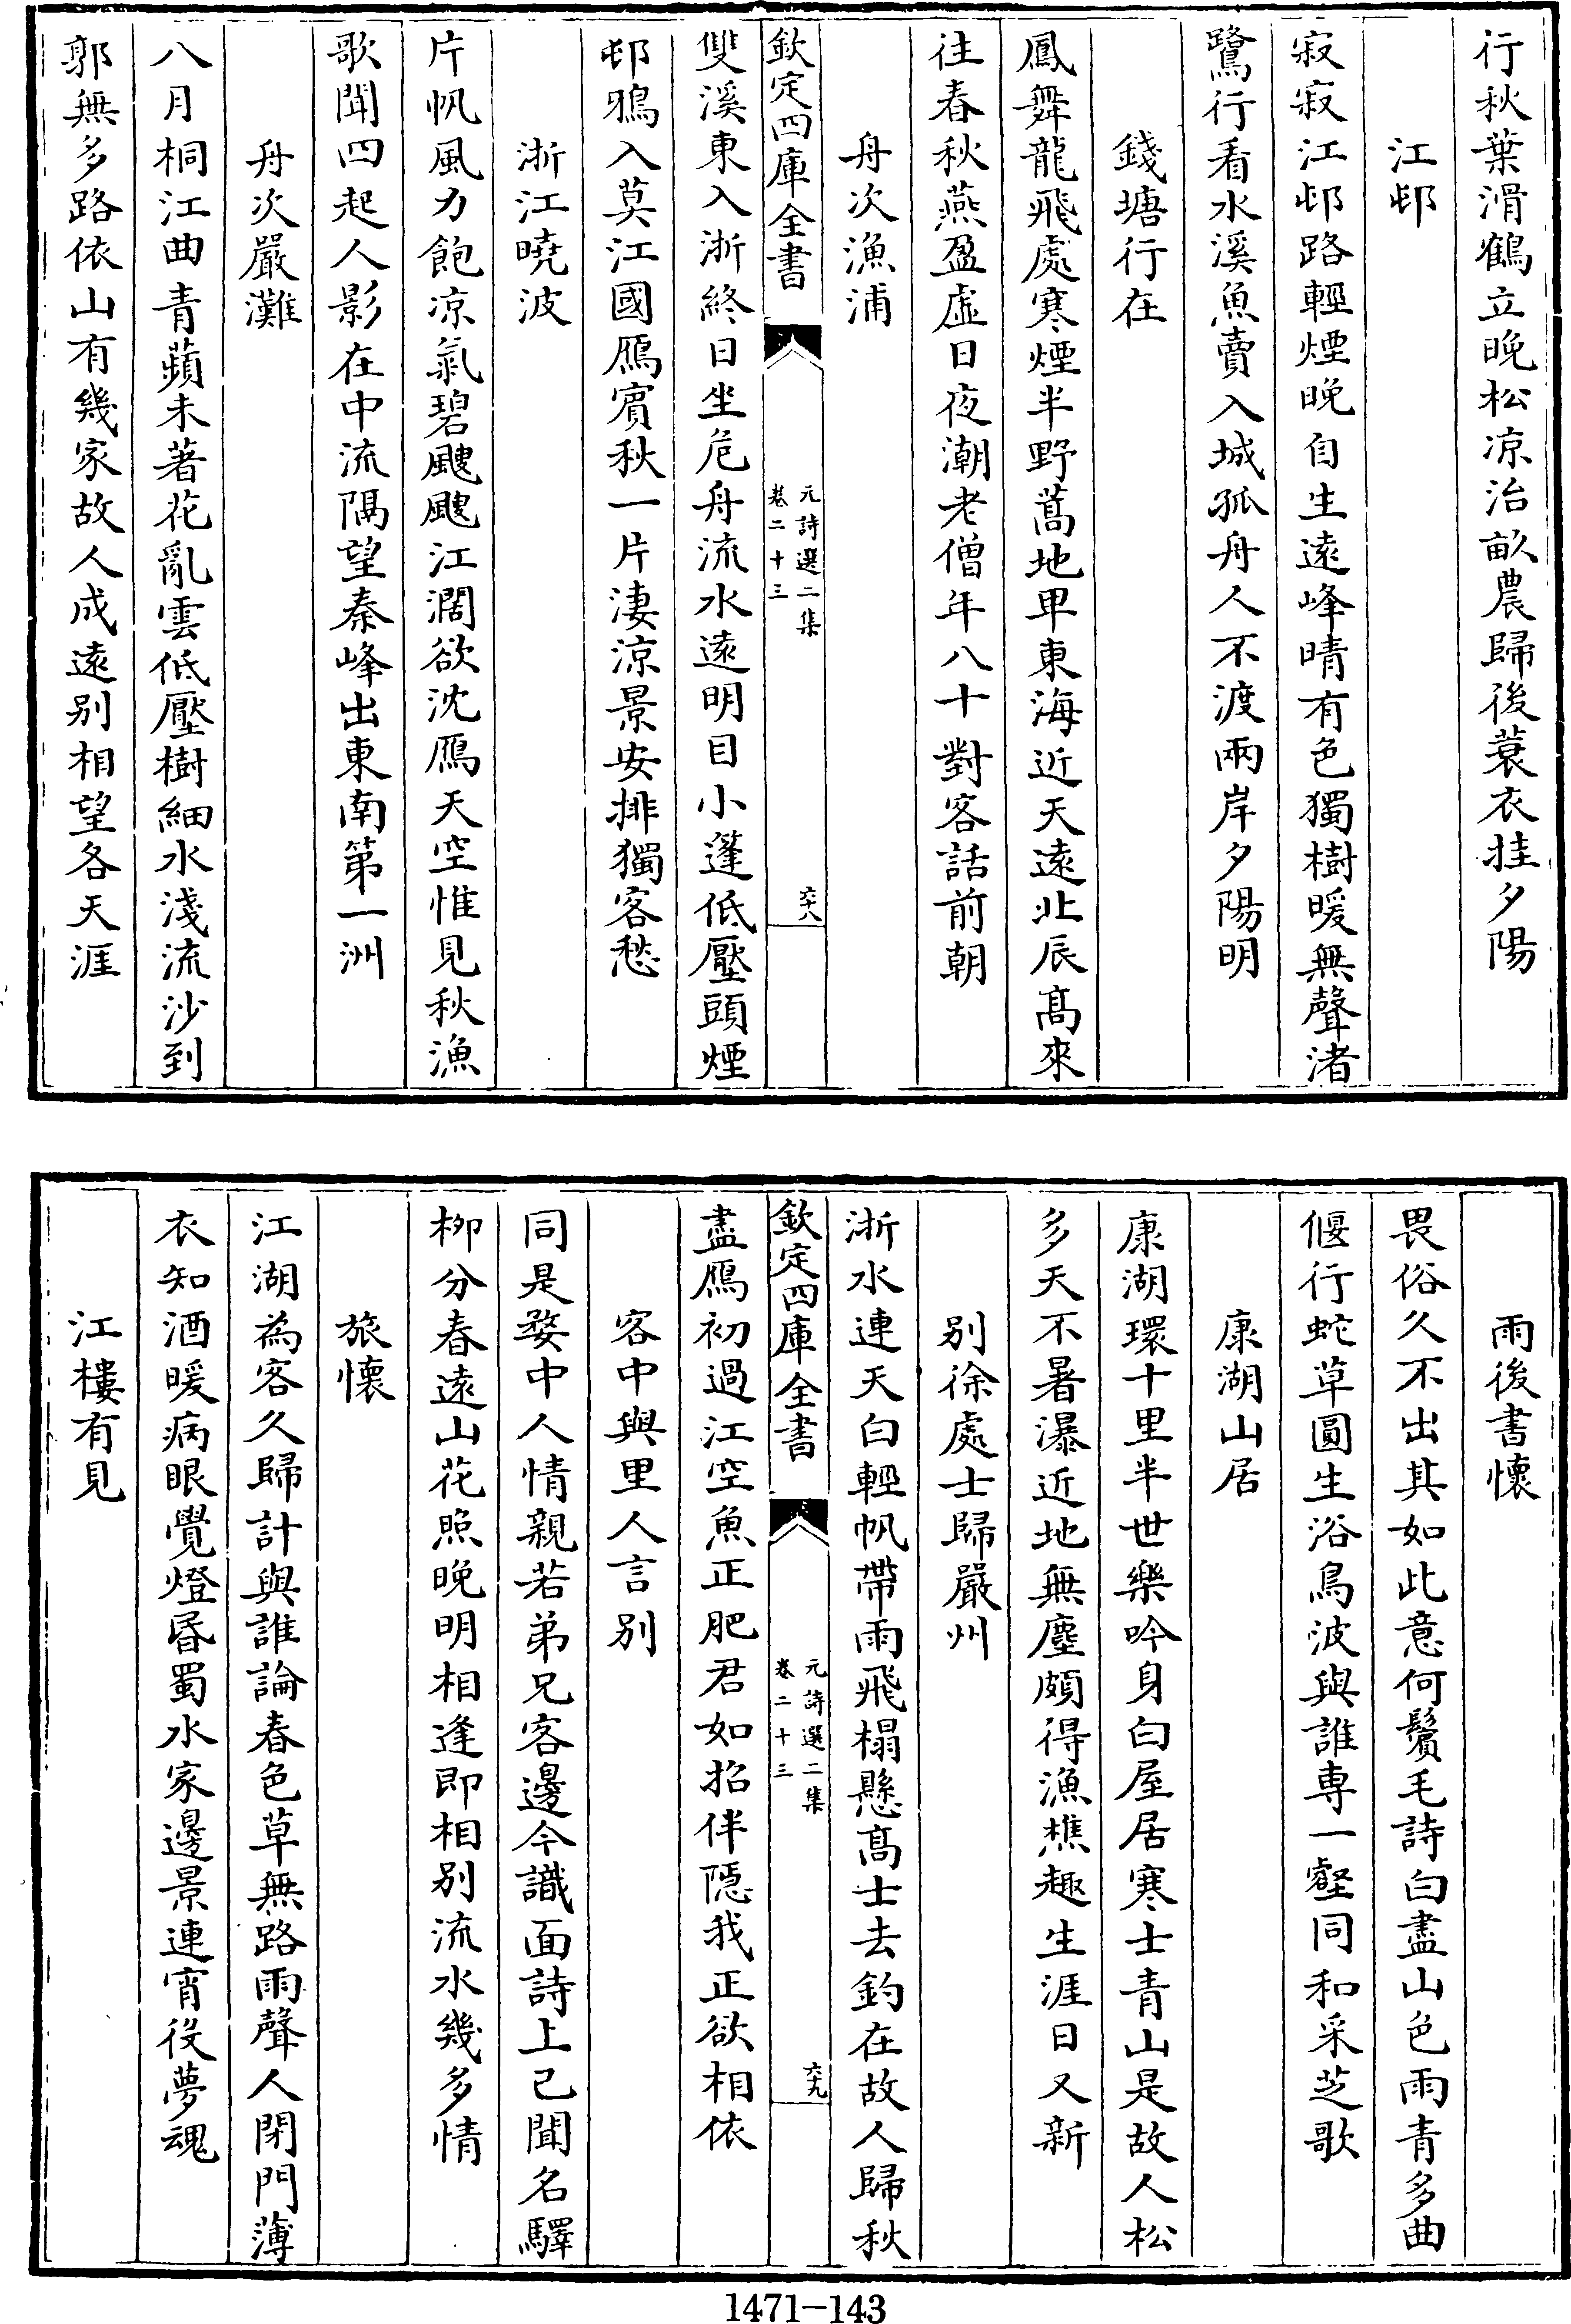 行秋葉滑鶴立晚松凉治畝農歸後蓑衣挂夕陽
江邨
寂寂江邨路輕煙晚自生遠峰晴有色獨樹暖無聲渚
鷺行看水溪魚賣入城孤舟人不渡兩岸夕陽明
錢塘行在
鳳舞龍飛處寒煙半野蒿地卑東海近天遠北辰髙來
往春秋燕盈虛日夜潮老僧年八十對客話前朝
舟次漁浦
欽定四庫全書
元詩選二集
卷二十三
六十八
雙溪東入浙終日坐危舟流水遠明目小蓬低壓頭煙
邨鴉入莫江國鴈賓秋一片淒涼景安排獨客愁
浙江曉波
片帆風力飽凉氣碧颼颼江濶欲沈鴈天空惟見秋漁
歌聞四起人影在中流隔望秦峰出東南第一洲
舟次嚴灘
八月桐江曲青蘋未著花亂雲低壓樹細水淺流沙到
郭無多路依山有幾家故人成遠别相望各天涯
雨後書懷
畏俗久不出其如此意何鬢毛詩白盡山色雨青多曲
偃行蛇草圓生浴鳥波與誰専一壑同和采芝歌
康湖山居
康湖環十里半世樂吟身白屋居寒士青山是故人松
多天不暑瀑近地無塵頗得漁樵趣生涯日又新
别徐處士歸嚴州
浙水連天白輕帆帶雨飛榻懸髙士去釣在故人歸秋
欽定四庫全書
元詩選二集
卷二十三
六十九
盡鴈初過江空魚正肥君如招伴隠我正欲相依
客中與里人言别
同是婺中人情親若弟兄客邊今識面詩上已聞名驛
柳分春遠山花照晚明相逢即相别流水幾多情
旅懷
江湖為客久歸計與誰論春色草無路雨聲人閉門薄
衣知酒暖病眼覺燈昏蜀水家邊景連宵役夢魂
江樓有見
1471-143